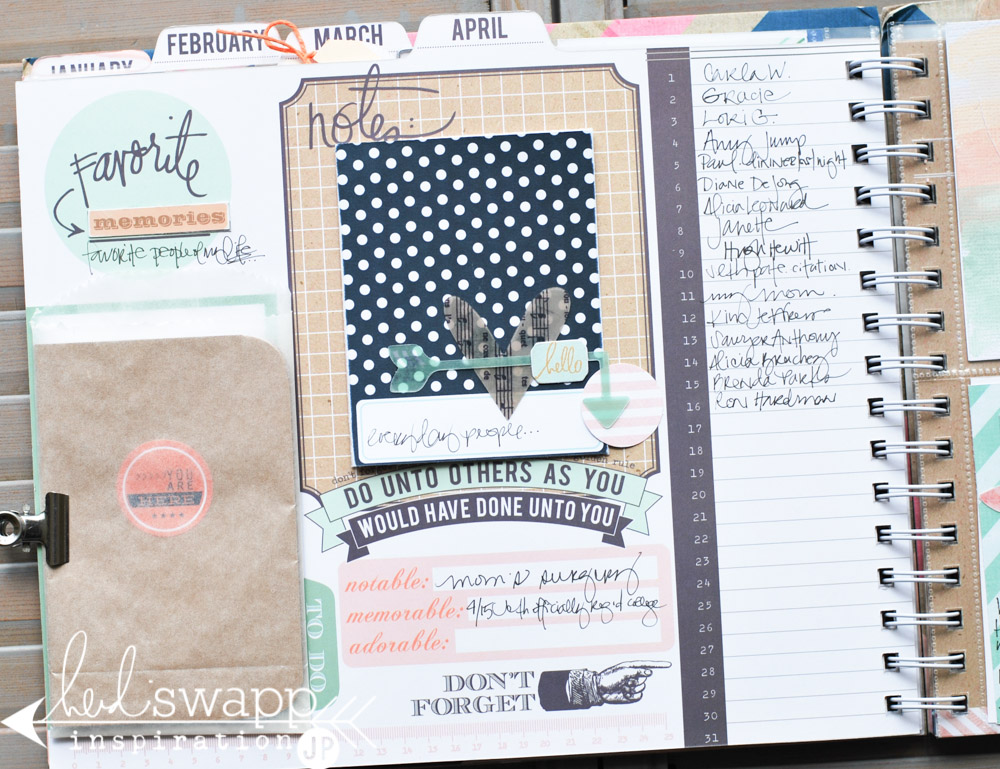 JANUARY
FEBRUARY
MARCH
APRIL
Favorite
memories
favorite people of my life.
YOU
ARE
HERE
notes:
hello
everyday people...
DO UNTO OTHERS AS YOU
WOULD HAVE DONE UNTO YOU
notable: mom's surgery
memorable: 4/15 beth officially reg'd college
adorable:
TO DO
DON'T
FORGET
1 Carla W.
2 Gracie
3 Lori G.
4 Amy Jump
5 Paul dinner as/night
6 Diane DeLong
7 Alicia
8 Janette
9 Hugh Hewitt
10 citation
11 my mom.
12
13 Sawyer Anthony
14 Alicia
15 Brenda
16 Ron Hardman
17
18
19
20
21
22
23
24
25
26
27
28
29
30
31
heidi swapp
inspiration JP